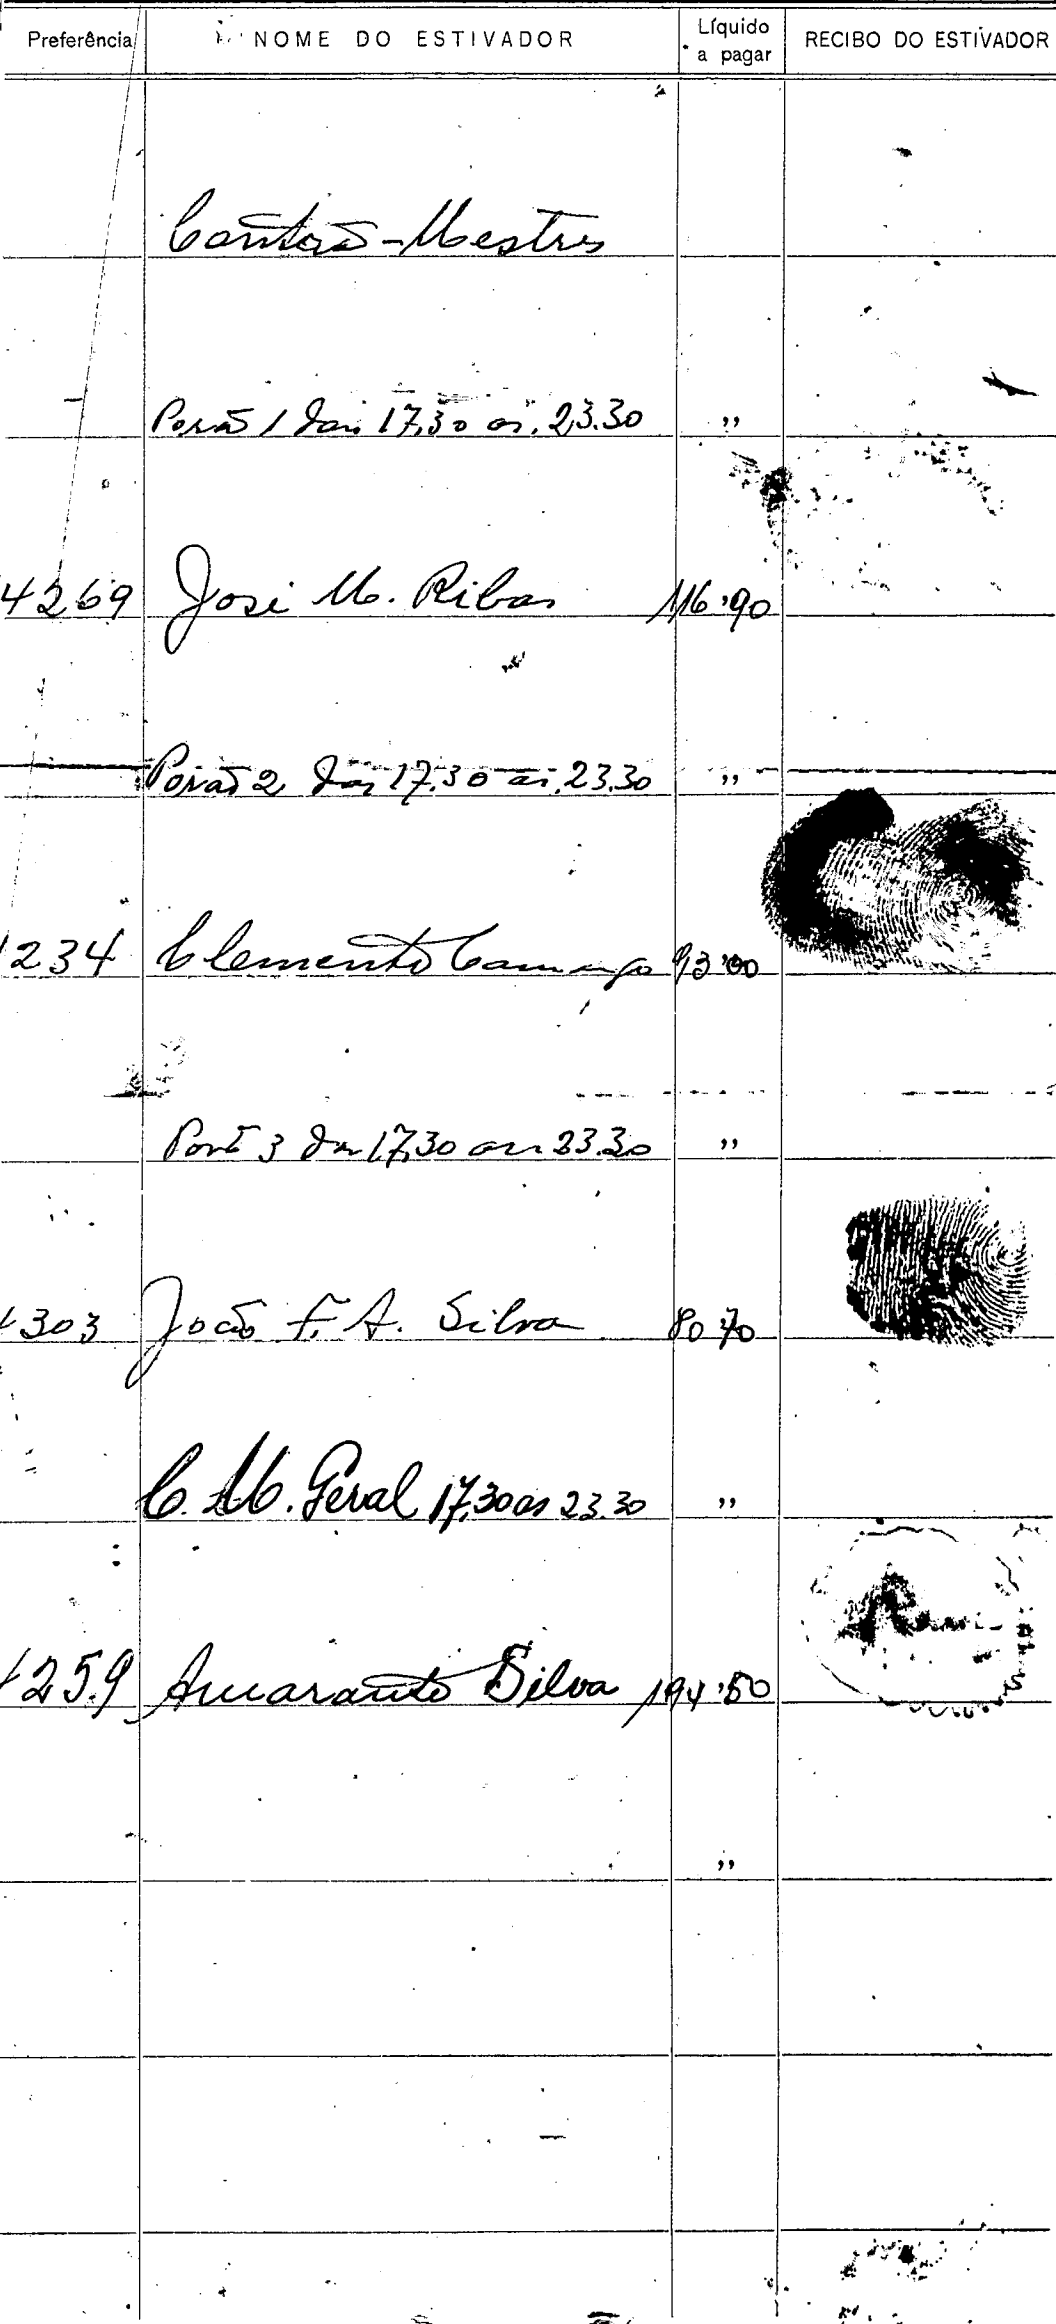 Preferência NOME DO ESTIVADOR Líquido a pagar RECIBO DO ESTIVADOR
Contra-Mestres
Porão 1 das 17,30 as 23.30 ,,
4269 José M. Ribas 116,90
Porão 2 das 17.30 as 23.30 ,,
234 Clemento Camargo 93,00
Porão 3 das 17,30 as 23.30 ,,
303 João F. A. Silva 80,70
C. M. Geral 17,30 as 23.30 ,,
4259 Amaranto Silva 194,50
,,